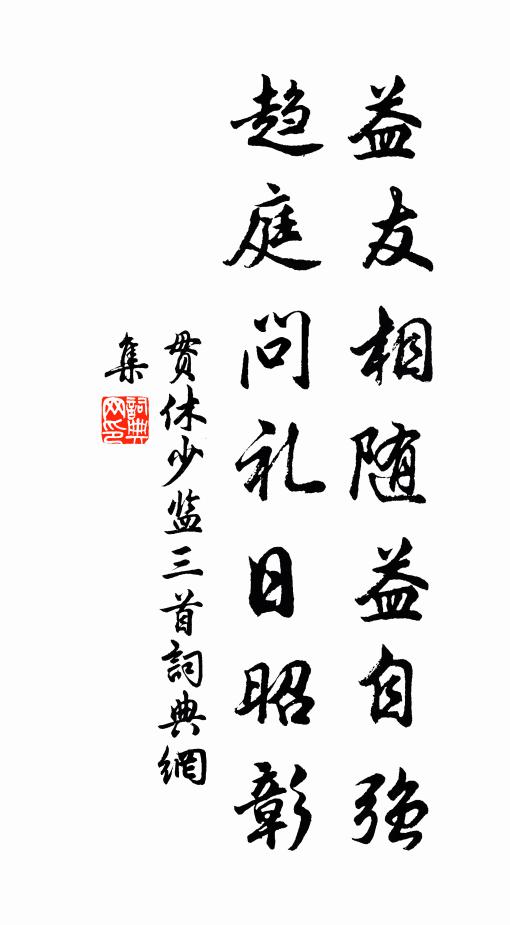 益友相随益自强
趋庭问礼日昭彰
贯休少监三首詞典網
集
詞典
网印